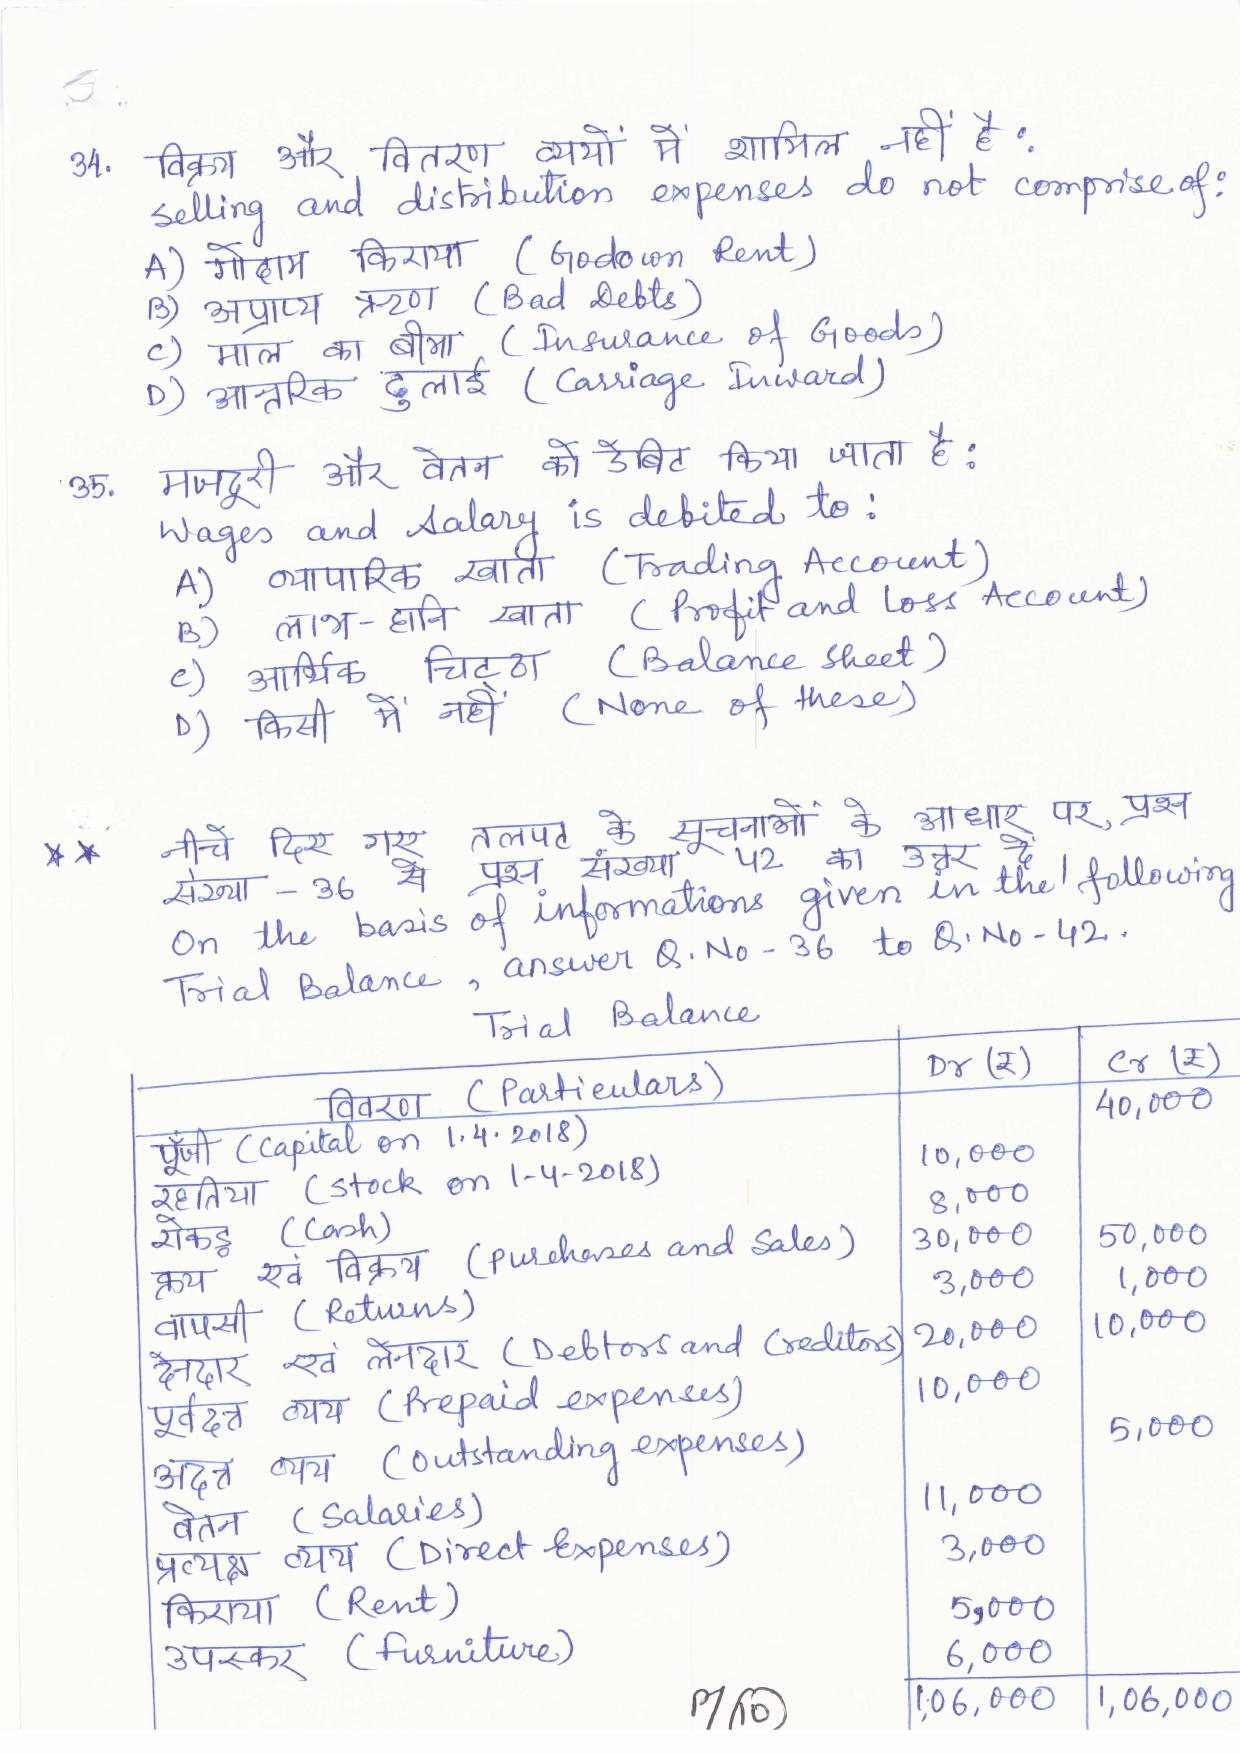 34. विक्रय और वितरण व्ययों में शामिल नहीं है :
Selling and distribution expenses do not comprise of:
A) गोदाम किराया (Godown Rent)
B) अप्राप्य ऋण (Bad Debts)
C) माल का बीमा (Insurance of Goods)
D) आन्तरिक ढुलाई (Carriage Inward)
35. मजदूरी और वेतन को डेबिट किया जाता है :
Wages and Salary is debited to :
A) व्यापारिक खाता (Trading Account)
B) लाभ-हानि खाता (Profit and Loss Account)
C) आर्थिक चिट्ठा (Balance Sheet)
D) किसी में नहीं (None of these)
** नीचे दिए गए तलपट के सूचनाओं के आधार पर, प्रश्न
संख्या - 36 से प्रश्न संख्या 42 का उत्तर दें
On the basis of informations given in the following
Trial Balance, answer Q.No-36 to Q.No-42.
Trial Balance
विवरण (Particulars) Dr (₹) Cr (₹)
पूँजी (Capital on 1.4.2018) 40,000
रहतिया (Stock on 1-4-2018) 10,000
रोकड़ (Cash) 8,000
क्रय एवं विक्रय (Purchases and Sales) 30,000 50,000
वापसी (Returns) 3,000 1,000
देनदार एवं लेनदार (Debtors and Creditors) 20,000 10,000
पूर्वदत्त व्यय (Prepaid expenses) 10,000
अदत्त व्यय (Outstanding expenses) 5,000
वेतन (Salaries) 11,000
प्रत्यक्ष व्यय (Direct Expenses) 3,000
किराया (Rent) 5,000
उपस्कर (Furniture) 6,000
1,06,000 1,06,000